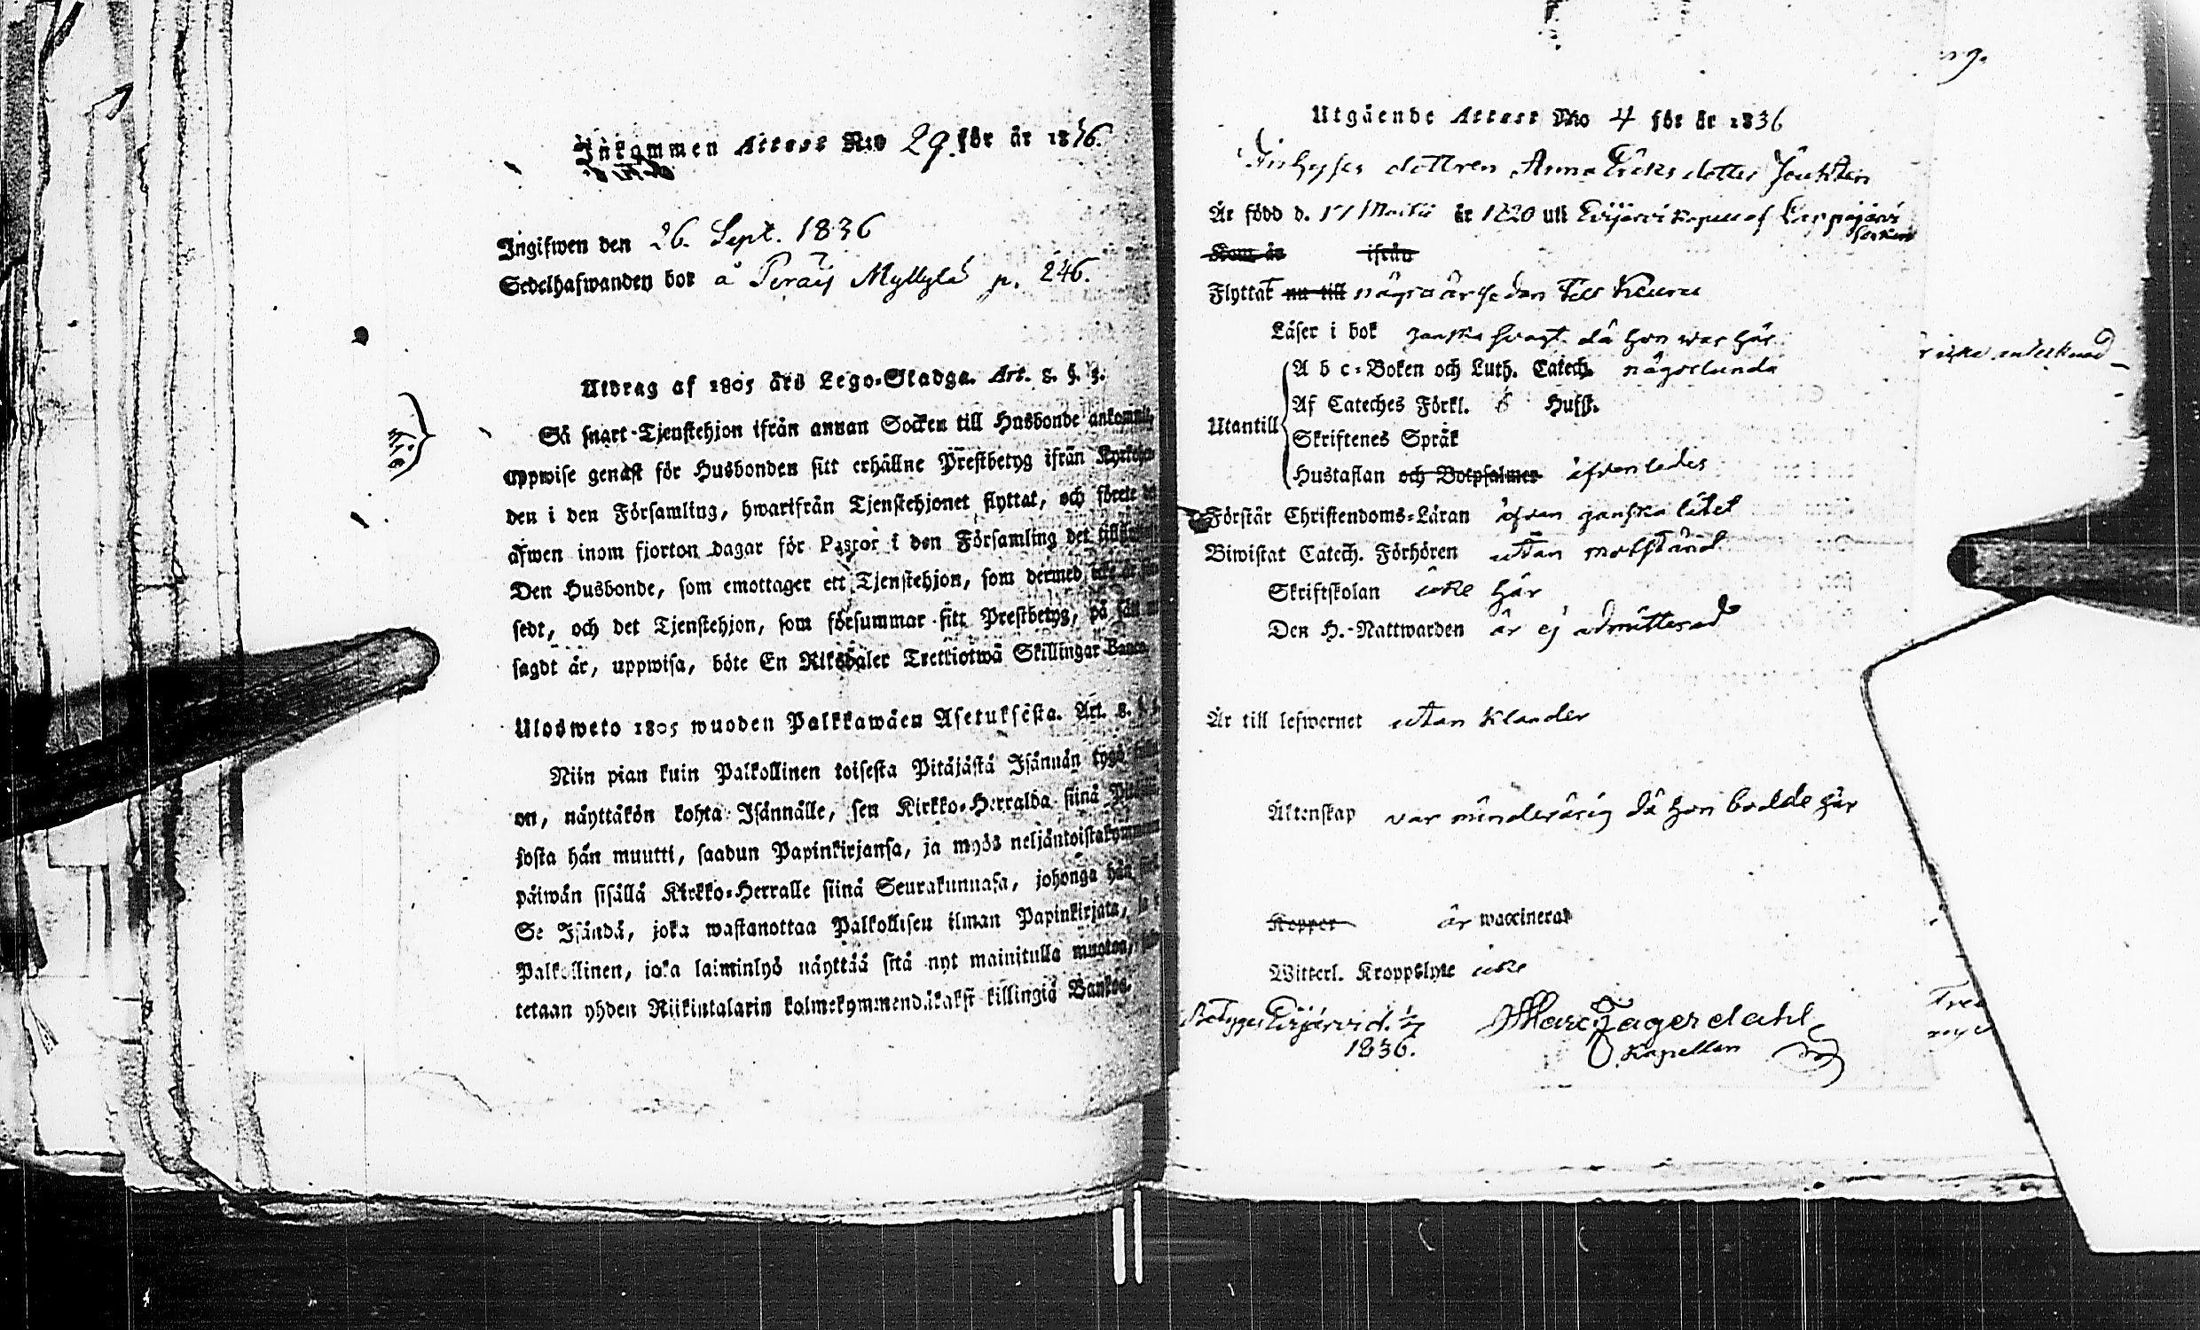 Inkommen Attest N:o 29 för år 1836.
Ingifwen den 26. Sept. 1836
Sedelhafwanden bor å Peräis Myllylä p. 246.
Utdrag af 1805 års Lego-Stadga. Art. 8. §. 3.
Så snart Tjenstehjon ifrån annan Socken till Husbonde
uppwise genast för Husbonden sitt erhållne Prestbetyg ifrån
den i den Församling, hwarifrån Tjenstehjonet flyttat, och förete
äfwen inom fjorton dagar för Pastor i den Församling det
Den Husbonde, som emottager ett Tjenstehjon, som dermed
sedt, och det Tjenstehjon, som försummar sitt Prestbetyg, på sätt
sagdt är, uppwisa, böte En Riksdaler Trettiotwå Skillingar Banco
Ulosweto 1805 wuoden Palkkawäen Asetuksesta. Art. 8.
Niin pian kuin Palkollinen toisesta Pitäjästä Isännän tygö
on, näyttäkön kohta Isännälle, sen Kirkko-Herralda siinä
josta hän muutti, saadun Papinkirjansa, ja myös neljäntoistakymmenen
päiwän sisällä Kirkko-Herralle siinä Seurakunnasa, johonga hän
Se Isändä, joka wastanottaa Palkollisen ilman Papinkirjata,
Palkollinen, joka laiminlyö näyttää sitä nyt mainitulla muoton,
tetaan yhden Riikintalarin kolmekymmendäkaksi killingiä Bankos.
Utgående Attest No 4 för år 1836
Inhyses dottren Anna Eriks dotter
Är född d. 17 Martii år 1820 uti Evijärvi kapell af Lappajärvi
socken
Kom år ifrån
Flyttat nu till några år sedan till Keuru
Läser i bok ganska svagt då hon war här
A b c-Boken och Luth. Catech. någorlunda
Af Cateches Förkl. 6 Hufst.
Utantill
Skriftenes Språk
Hustaflan och Botpsalmer äfvenledes
Förstår Christendoms-Läran äfven ganska litet
Biwistat Catech. Förhören utan motstånd
Skriftskolan icke här
Den H. Nattwarden är ej admitterad
Är till lefwernet utan klander
Äktenskap var minderårig då hon bodde här
Koppor är waccinerad
Witterl. Kroppslyte icke
Betygar Evijärvi d.
1836.
Marc Fagerdahl
Kapellan